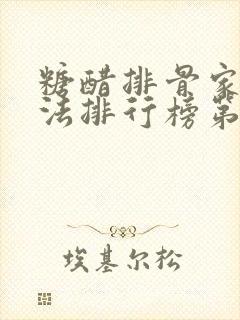 糖醋排骨家
法排行榜第
埃基尔松